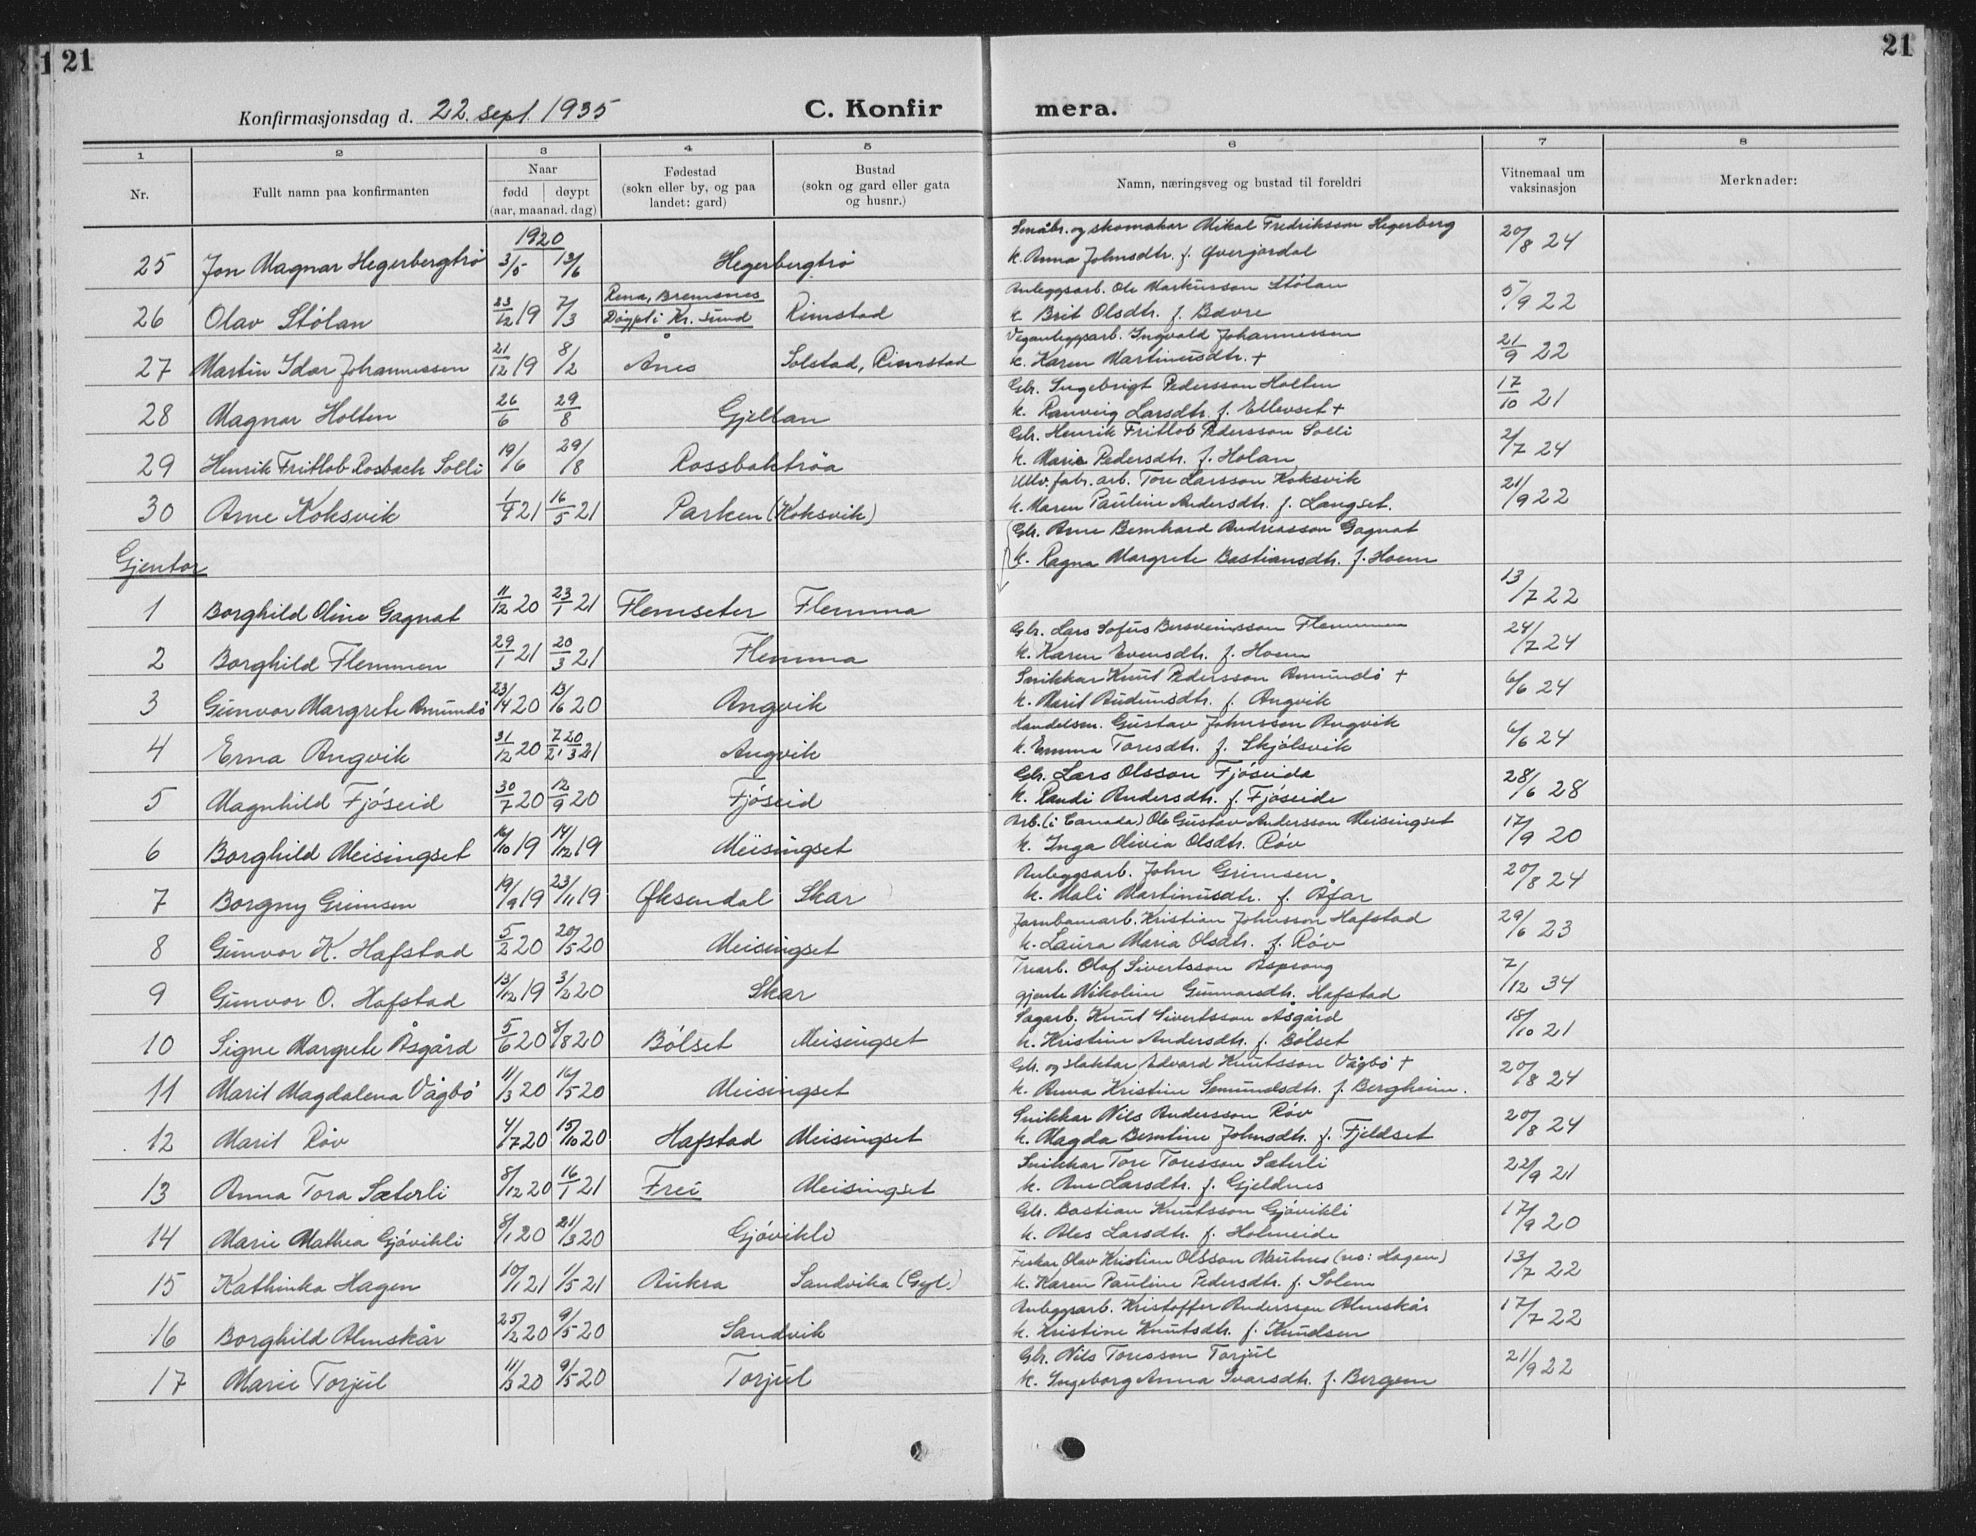 21
21
Konfirmasjonsdag d. 22. sept 1935
C. Konfir mera.
1 2 3 4 5 6 7 8
Nr. Fullt namn paa konfirmanten Naar Fødestad Bustad Namn, næringsveg og bustad til foreldri Vitnemaal um Merknader:
fødd døypt (sokn eller by, og paa (sokn og gard eller gata vaksinasjon
(aar, maanad. dag) landet: gard) og husnr.)
1920
Småbr. og skomakar Mikal Fredriksson Hegerberg
25 Jon Magnar Hegerbergtrø 3/5 13/6 Hegerbergtrø k. Anna Johnsdtr. f. Øverjordal 20/8 24
Rena, Bremsnes Anleggsarb. Ole Markusson Stølan
26 Olav Stølan 23/12 19 7/3 Døypt i Kr. sund Rimstad k. Brit Olsdtr. f. Bævre 5/9 22
Veganleggsarb. Ingvald Johannessen
27 Martin Idar Johannessen 21/12 19 8/2 Ånes Solstad, Rimstad k. Karen Martinusdtr. + 21/9 22
Gbr. Ingebrigt Pedersson Holten
28 Magnar Holten 26/6 29/8 Gjeltan k. Ranveig Larsdtr. f. Ellevset + 17/10 21
Gbr. Henrik Fritlob Pedersson Solli
29 Henrik Fritlob Rosbach Solli 19/6 29/8 Rossbaktrøa k. Marie Pedersdtr. f. Holan 2/7 24
Ullv. fabr. arb. Tore Larsson Koksvik
30 Arne Koksvik 1/4 21 16/5 21 Parken (Koksvik) k. Maren Pauline Andersdtr. f. Langset. 21/9 22
Gbr. Arne Bernhard Andreasson Gagnat
Gjentor k. Ragna Margrete Bastiansdtr. f. Hoem
1 Borghild Oline Gagnat 11/12 20 23/1 21 Flemseter Flemma 13/7 22
Gbr. Lars Sofus Bersveinsson Flemmen
2 Borghild Flemmen 29/1 21 20/3 21 Flemma k. Karen Evensdtr. f. Hoem 24/7 24
Snikkar Knut Pedersson Amundø +
3 Gunvor Margrete Amundø 23/4 20 13/6 20 Angvik k. Marit Audunsdtr. f. Angvik 6/6 24
Handelsm. Gustav Johnsson Angvik
4 Erna Angvik 31/12 20 20/3 21 Angvik k. Emma Toresdtr. f. Skjølsvik 6/6 24
Gbr. Lars Olsson Fjøseide
5 Magnhild Fjøseid 30/7 20 12/9 20 Fjøseid k. Randi Andersdtr. f. Fjøseide 28/6 28
Arb. (i Canada) Ole Gustav Andersson Meisingset
6 Borghild Meisingset 16/10 19 14/12 19 Meisingset k. Inga Olivia Olsdtr. Røv 17/9 20
Anleggsarb. John Grimsen
7 Borgny Grimsen 19/9 19 23/11 19 Øksendal Skar k. Mali Martinusdtr. f. Åfar 20/8 24
Jarnbanearb. Kristian Johnsson Hafstad
8 Gunvor K. Hafstad 5/2 20 20/5 20 Meisingset k. Laura Maria Olsdtr. f. Røv 29/6 23
Trearb. Olaf Sivertsson Asprong
9 Gunvor O. Hafstad 13/12 19 3/2 20 Skar gjente Nikoline Gunnarsdtr. Hafstad 7/12 34
Sagarb. Knut Sivertsson Åsgård
10 Signe Margrete Åsgård 5/6 20 8/8 20 Bølset Meisingset k. Kristine Andersdtr. f. Bølset 18/10 21
Gbr. og slaktar Edvard Knutsson Vågbø +
11 Marit Magdalena Vågbø 11/3 20 16/5 20 Meisingset k. Anna Kristine Semundsdtr. f. Bergheim. 20/8 24
Snikkar Nils Andersson Røv
12 Marit Røv 4/7 20 15/10 20 Hafstad Meisingset k. Magda Berntine Johnsdtr. f. Fjeldset 20/8 24
Snikkar Tore Toresson Sæterli
13 Anna Tora Sæterli 8/12 20 16/1 21 Frei Meisingset k. Ane Larsdtr. f. Gjeldnes 22/9 21
Gbr. Bastian Knutsson Gjøvikli
14 Marie Mathea Gjøvikli 8/1 20 21/3 20 Gjøvikli k. Ales Larsdtr. f. Holmeide 17/9 20
Fiskar Olav Kristian Olsson Nautnes (no: Hagen)
15 Kathinka Hagen 10/1 21 1/5 21 Aukra Sandvika (Gyl.) k. Karen Pauline Pedersdtr. f. Solem 13/7 22
Anleggsarb. Kristoffer Andersson Almskår
16 Borghild Almskår 25/2 20 9/5 20 Sandvik k. Kristine Knutsdtr. f. Knudsen 17/7 22
Gbr. Nils Toresson Torjul
17 Marie Torjul 11/3 20 9/5 20 Torjul k. Ingeborg Anna Ivarsdtr. f. Bergem 21/9 22